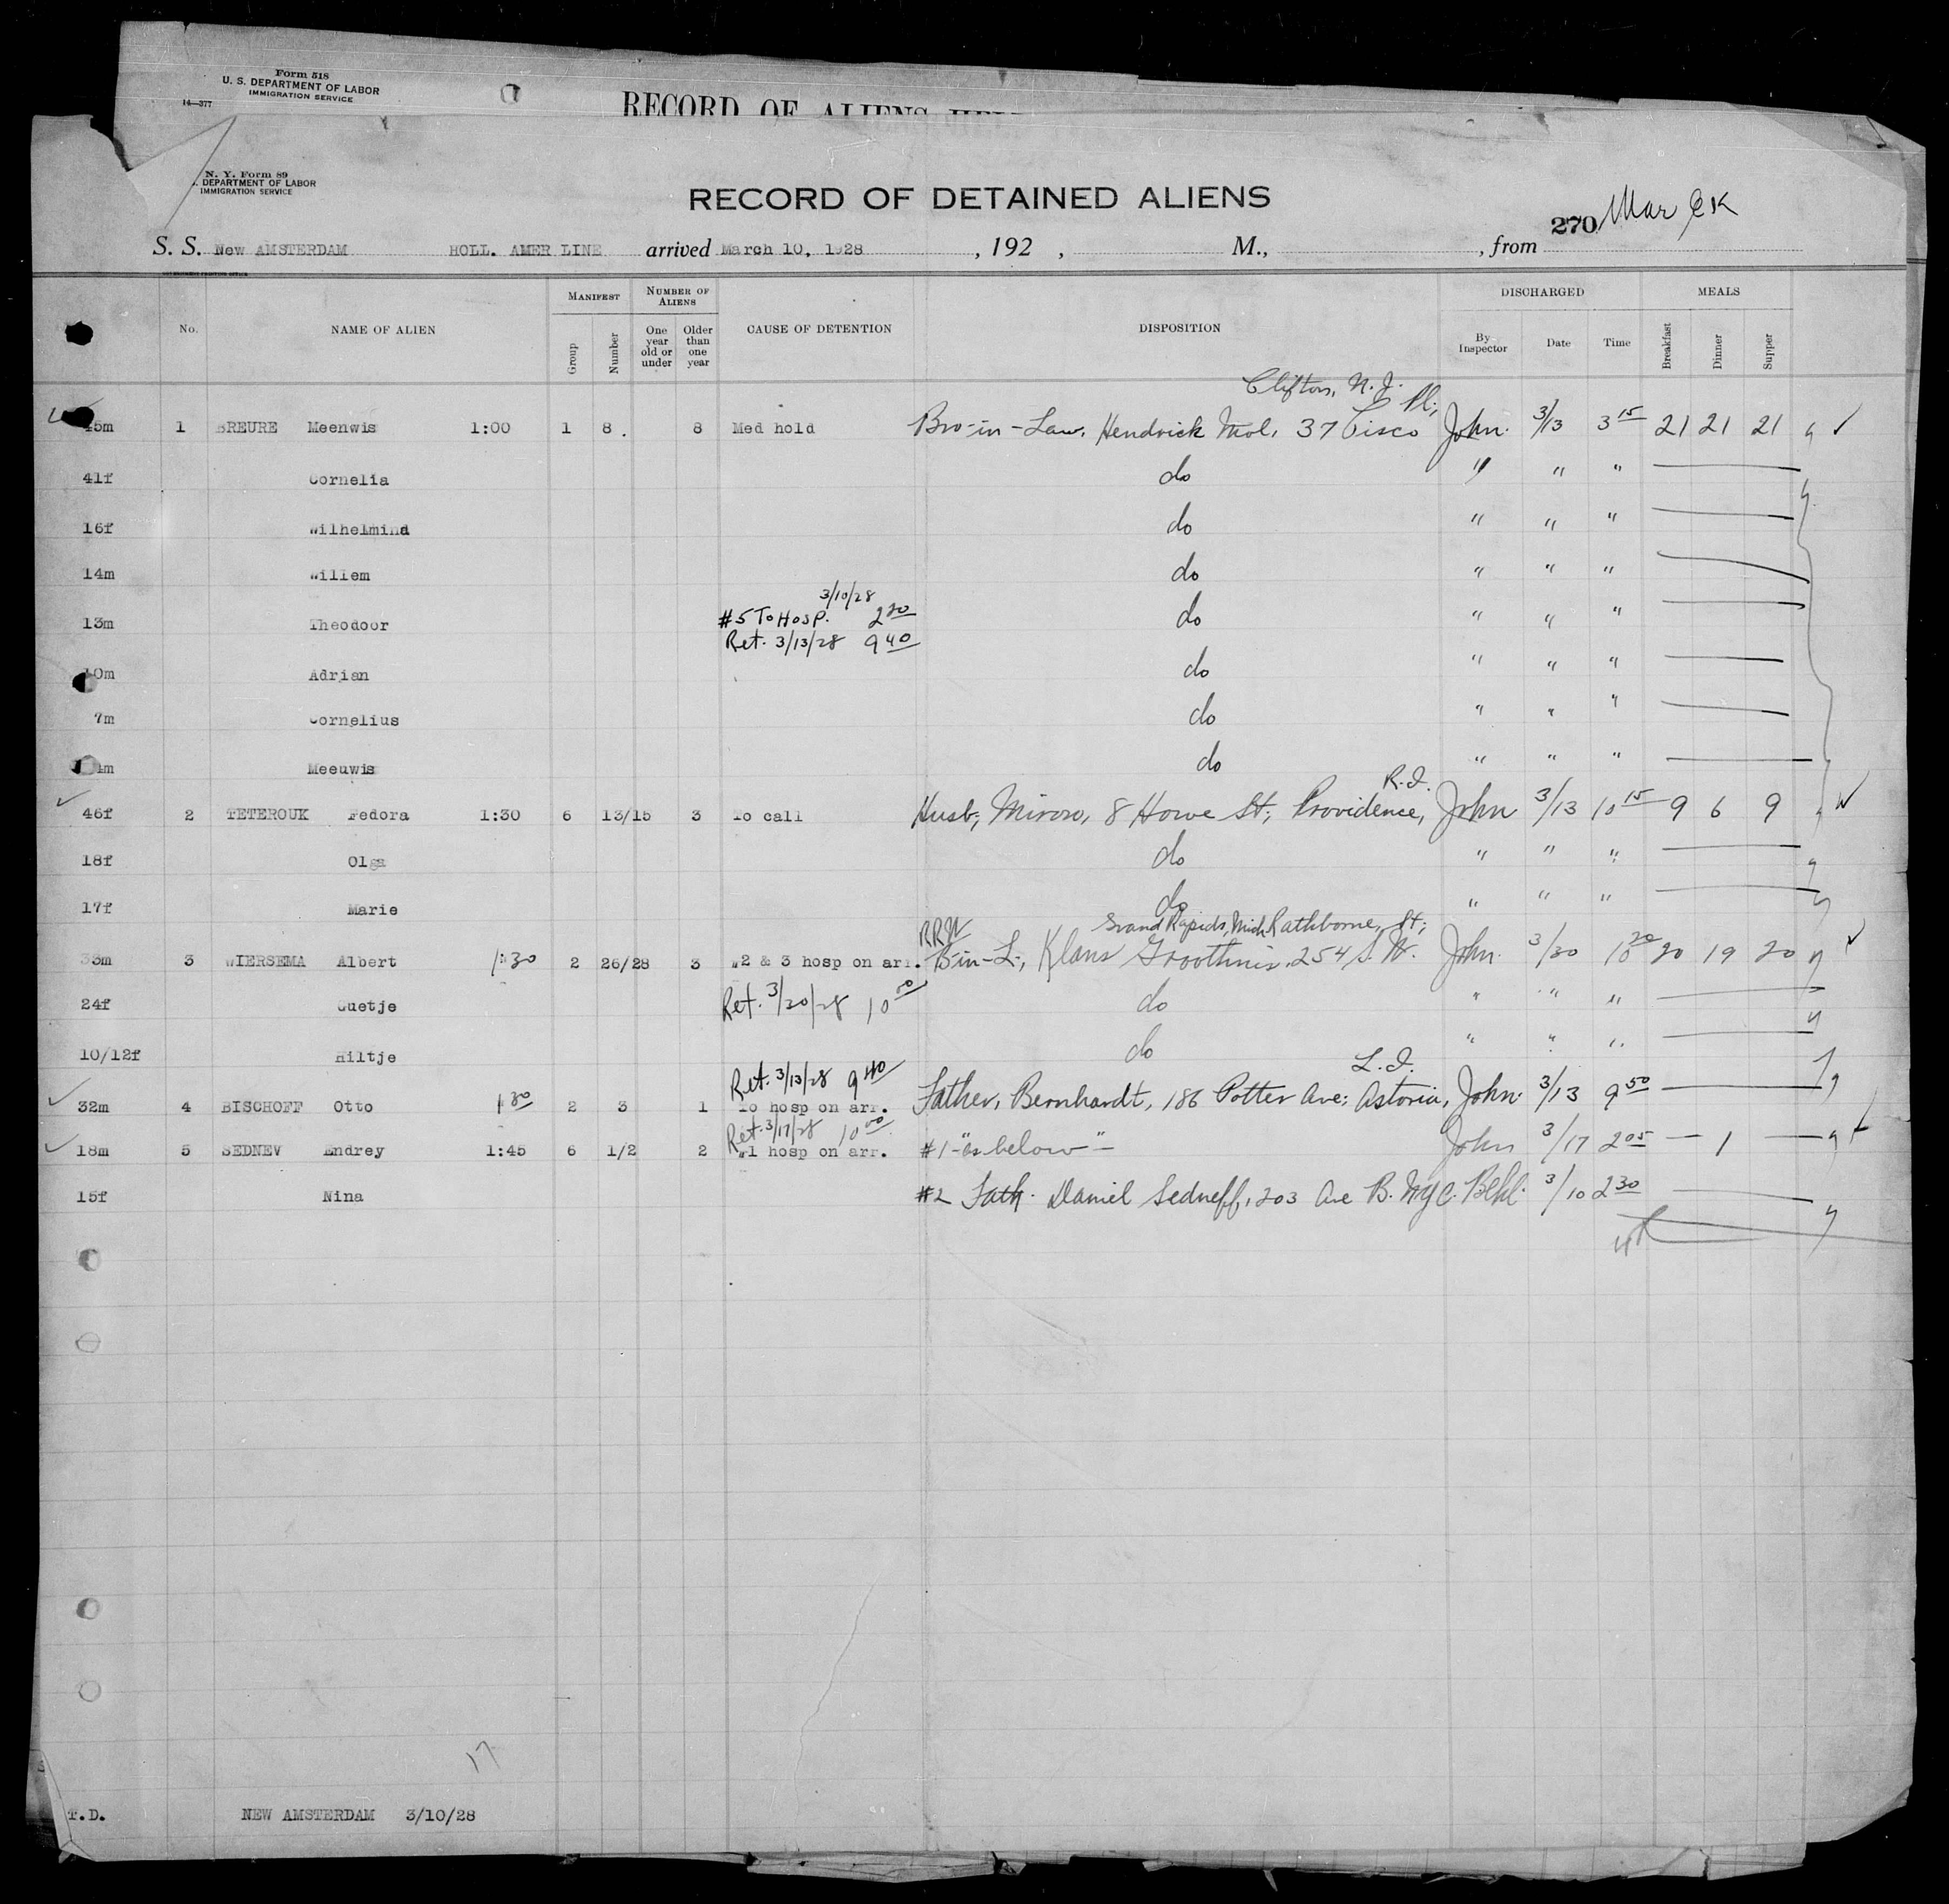 Form 518
U. S. DEPARTMENT OF LABOR
IMMIGRATION SERVICE
14—377
RECORD OF ALIENS HEL
N. Y. Form 89
. DEPARTMENT OF LABOR
IMMIGRATION SERVICE
RECORD OF DETAINED ALIENS
270
S. S. New AMSTERDAM HOLL. AMER LINE arrived March 10, 1928 , 192 , M., , from
No. NAME OF ALIEN MANIFEST Group Number NUMBER OF ALIENS One year old or under Older than one year CAUSE OF DETENTION DISPOSITION DISCHARGED By Inspector Date Time MEALS Breakfast Dinner Supper
Clifton, N. J.
Pl;
45m 1 BREURE Meenwis 1:00 1 8 . 8 Med hold Bro-in-Law, Hendrick Mol, 37 Cisco John. 3/13 3 15 21 21 21 ✓
41f Cornelia do " " "
16f Wilhelmina do " " "
14m Willem do " " "
3/10/28
13m Theodoor #5 To Hosp. 2 20 do " " "
Ret. 3/13/28 9 40
10m Adrian do " " "
7m Cornelius do " " "
4m Meeuwis do " " "
R.I.
✓ 46f 2 TETEROUK Fedora 1:30 6 13/15 3 To call Husb; Miron, 8 Howe St; Providence, John 3/13 10 15 9 6 9 ✓
18f Olga do " " "
17f Marie do " " "
RRW Grand Rapids, Mich. Rathborne, St;
33m 3 WIERSEMA Albert 1:30 2 26/28 3 #2 & 3 hosp on arr. B-in-L, Klaas Groothuis, 254 S. W. John. 3/20 10 20 20 19 20 ✓
24f Guetje Ret. 3/20/28 10 00 do " " "
10/12f Hiltje do " " "
Ret. 3/13/28 9 40 L.I.
✓ 32m 4 BISCHOFF Otto 1 30 2 3 1 To hosp on arr. Father, Bernhardt, 186 Potter Ave; Astoria, John. 3/13 9 50
Ret. 3/17/28 10 00
✓ 18m 5 SEDNEV Andrey 1:45 6 1/2 2 #1 hosp on arr. #1-"as below"- John 3/17 2 05 — 1 —
15f Nina #2 Fath. Daniel Sedneff, 203 Ave B. NYC. 3/10 2 30
17
T.D. NEW AMSTERDAM 3/10/28